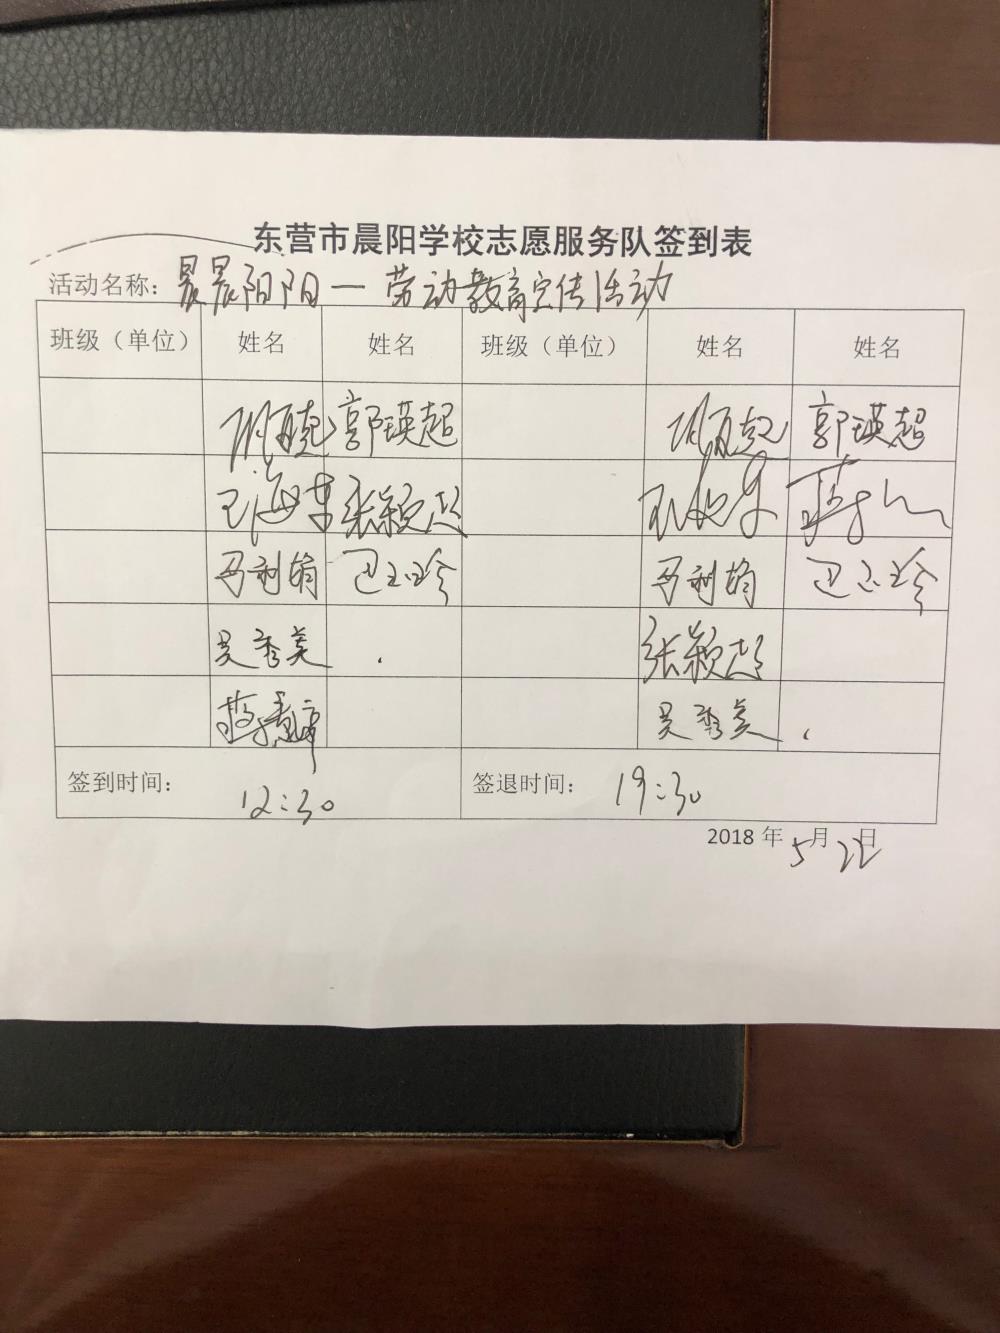 东营市晨阳学校志愿服务队签到表
活动名称：晨晨阳阳一劳动教育宣传活动
班级（单位） 姓名 姓名 班级（单位） 姓名 姓名
郭瑛超 郭瑛超
张颖超
马利娟 巴玉珍 马利娟 巴玉珍
吴秀美 张颖超
吴秀美
签到时间： 12:30 签退时间： 19:30
2018 年 5 月 22 日